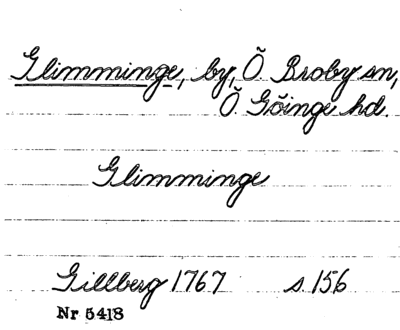 Glimminge, by, Ö. Broby sn,
Ö. Göinge hd.
Glimminge
Gillberg 1767 s. 156
Nr 5418